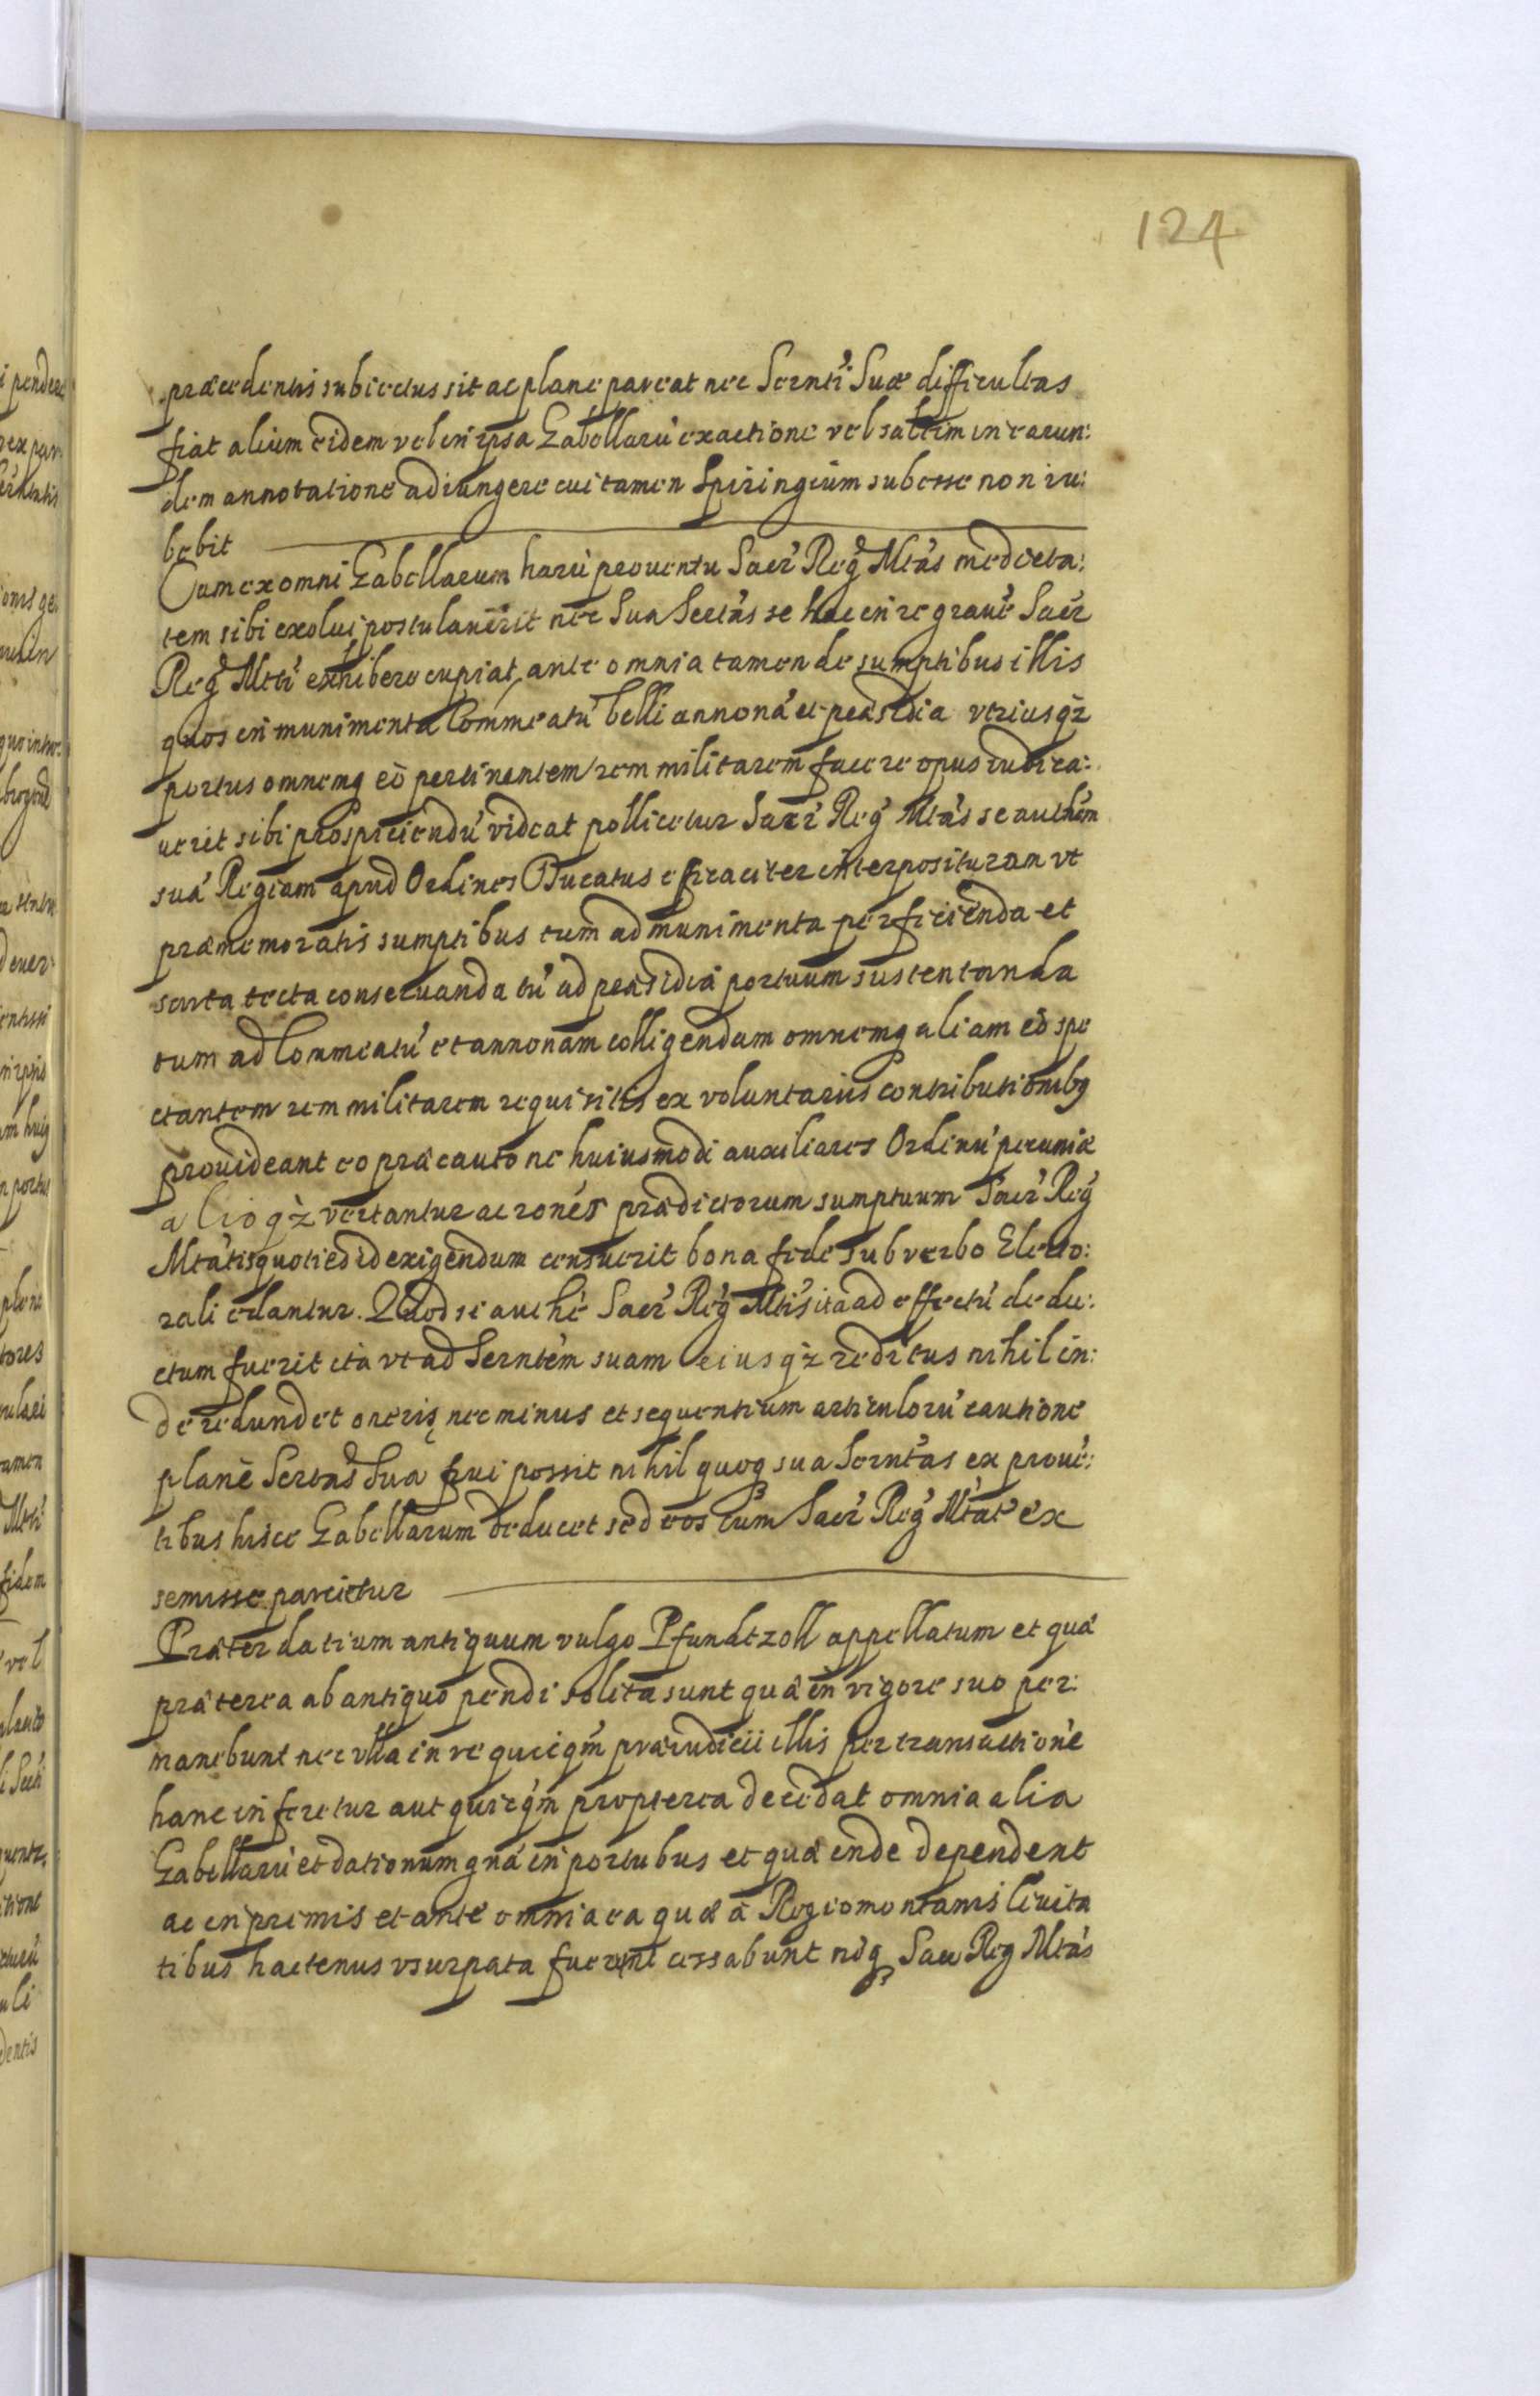 124
præcedentis subiectus sit ac plane pareat nec Serntĩ Suæ difficultas
fiat alium eidem vel in ipsa Gabellarũ exactione vel saltim in earun:
dem annotatione adiungere cui tamen Spiringium subesse non iu:
bebit
Cum ex omni Gabellarum harũ prouentu Sacr̃ Reg̃ Mtãs medieta:
tem sibi exolui postulauerit nec Sua Sertãs se hac in re grauẽ Sacr̃
Reg̃ Mtti exhibere cupiat, ante omnia tamen de sumptibus illis
quos in munimenta Commeatũ belli annonã et præsidia vtriusqz
portus omnemq eò pertinentem rem militarem facere opus iudica:
uerit sibi prospiciendũ videat pollicetur Sacr̃ Reg̃ Mtãs se authẽm
suã Regiam apud Ordines Ducatus efficaciter interposituram vt
præmemoratis sumptibus tum ad munimenta perficienda et
sarta tecta conseruanda tũ ad præsidia portuum sustentanda
tum ad Commeatũ et annonam colligendam omnemq aliam eò spe
ctantem rem militarem requisitis ex voluntariis contributionibq
prouideant eo præcauto ne huiusmodi auxiliares Ordinũ pecuniæ
alioqz vertantur ac ronẽs prædictorum sumptuum Sacr̃ Reg̃
Mtãtis quoties id exigendum censuerit bona fide sub verbo Electo:
rali edantur. Quod si authẽ Sacr̃ Reg̃ Mtis ita ad effectũ dedu:
ctum fuerit ita vt ad Serntẽm suam eiusqz reditus nihil in:
de redundet oneris nec minus et sequentium articulorũ cautione
planè Sertãs Sua frui possit nihil quoq sua Serntãs ex prouẽ:
tibus hisce Gabellarum deducet sed eos cum Sacr̃ Reg̃ Mtatẽ ex
semisse parcietur
Præter datium antiquum vulgo Pfundtzoll appellatum et quæ
præterea ab antiquo pendi solita sunt quæ in vigore suo per:
manebunt nec vlla in re quicqm̃ præiudicii illis per transactionẽ
hanc inferetur aut quicqm̃ propterea decedat omnia alia
Gabellarũ et dationum gnã in portubus et quæ inde dependent
ac in primis et ante omnia ea quæ à Regiomontanis Ciuita
tibus hactenus vsurpata fuerunt cessabunt neq Sac̃ Reg Mtãs